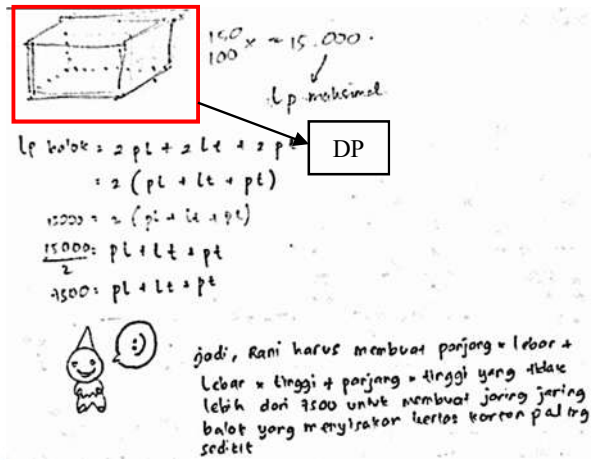 150
100 x = 15.000.
Lp maksimal
DP
Lp balok = 2 pl + 2 lt + 2 pt
= 2 (pl + lt + pt)
15000 = 2 (pl + lt + pt)
15000 = pl + lt + pt
2
7500 = pl + lt + pt
:)
jadi, Rani harus membuat panjang × lebar +
Lebar × tinggi + panjang × tinggi yang tidak
lebih dari 7500 untuk membuat jaring jaring
balok yang menyisakan kertas karton paling
sedikit